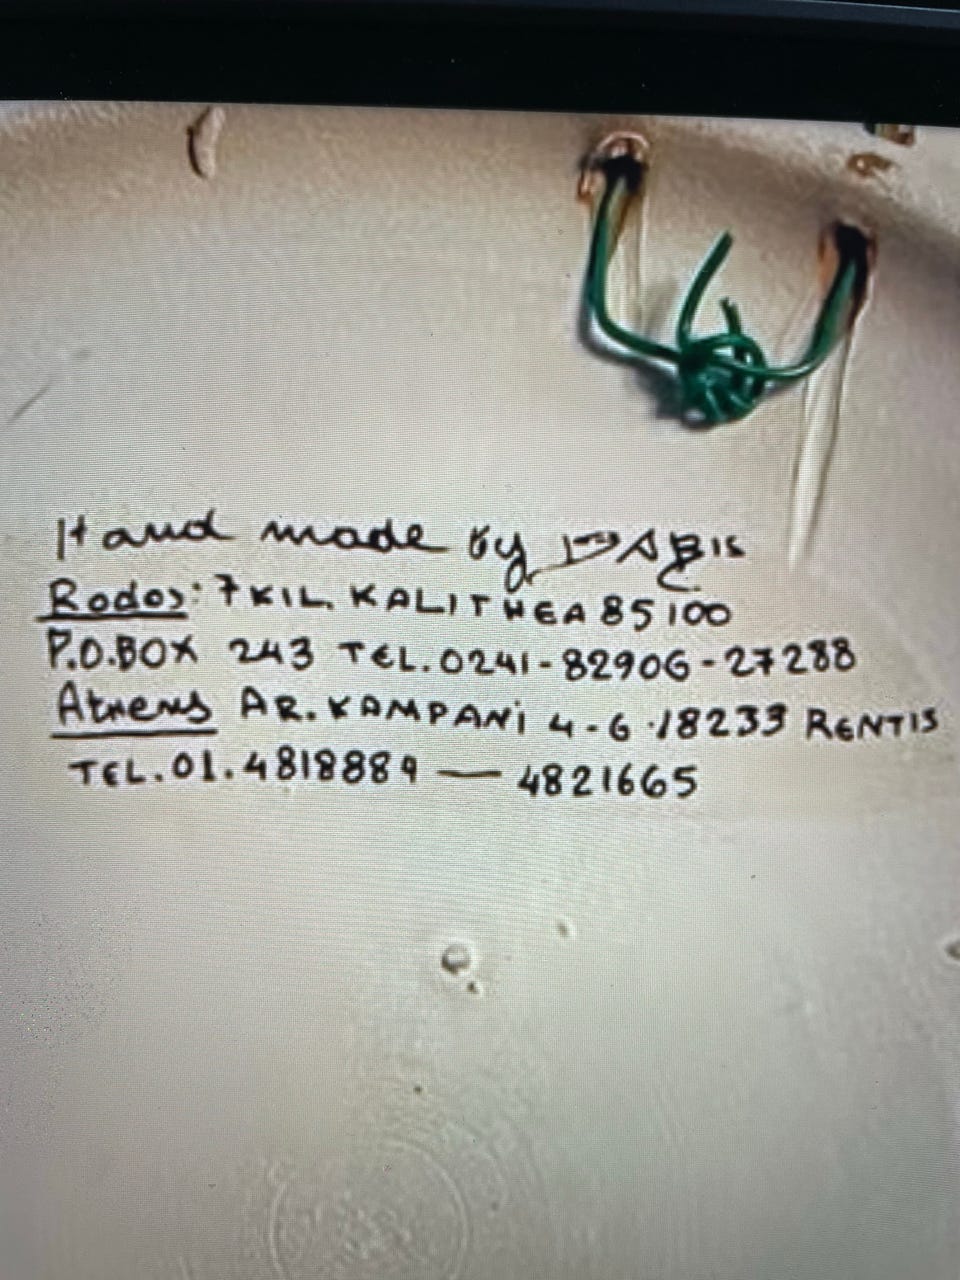 Hand made by DABIS
Rodos: 7 KIL. KALITHEA 85100
P.O.BOX 243 TEL. 0241-82906-27288
Athens AR. KAMPANi 4-6 . 18233 RENTIS
TEL. 01. 4818889 — 4821665